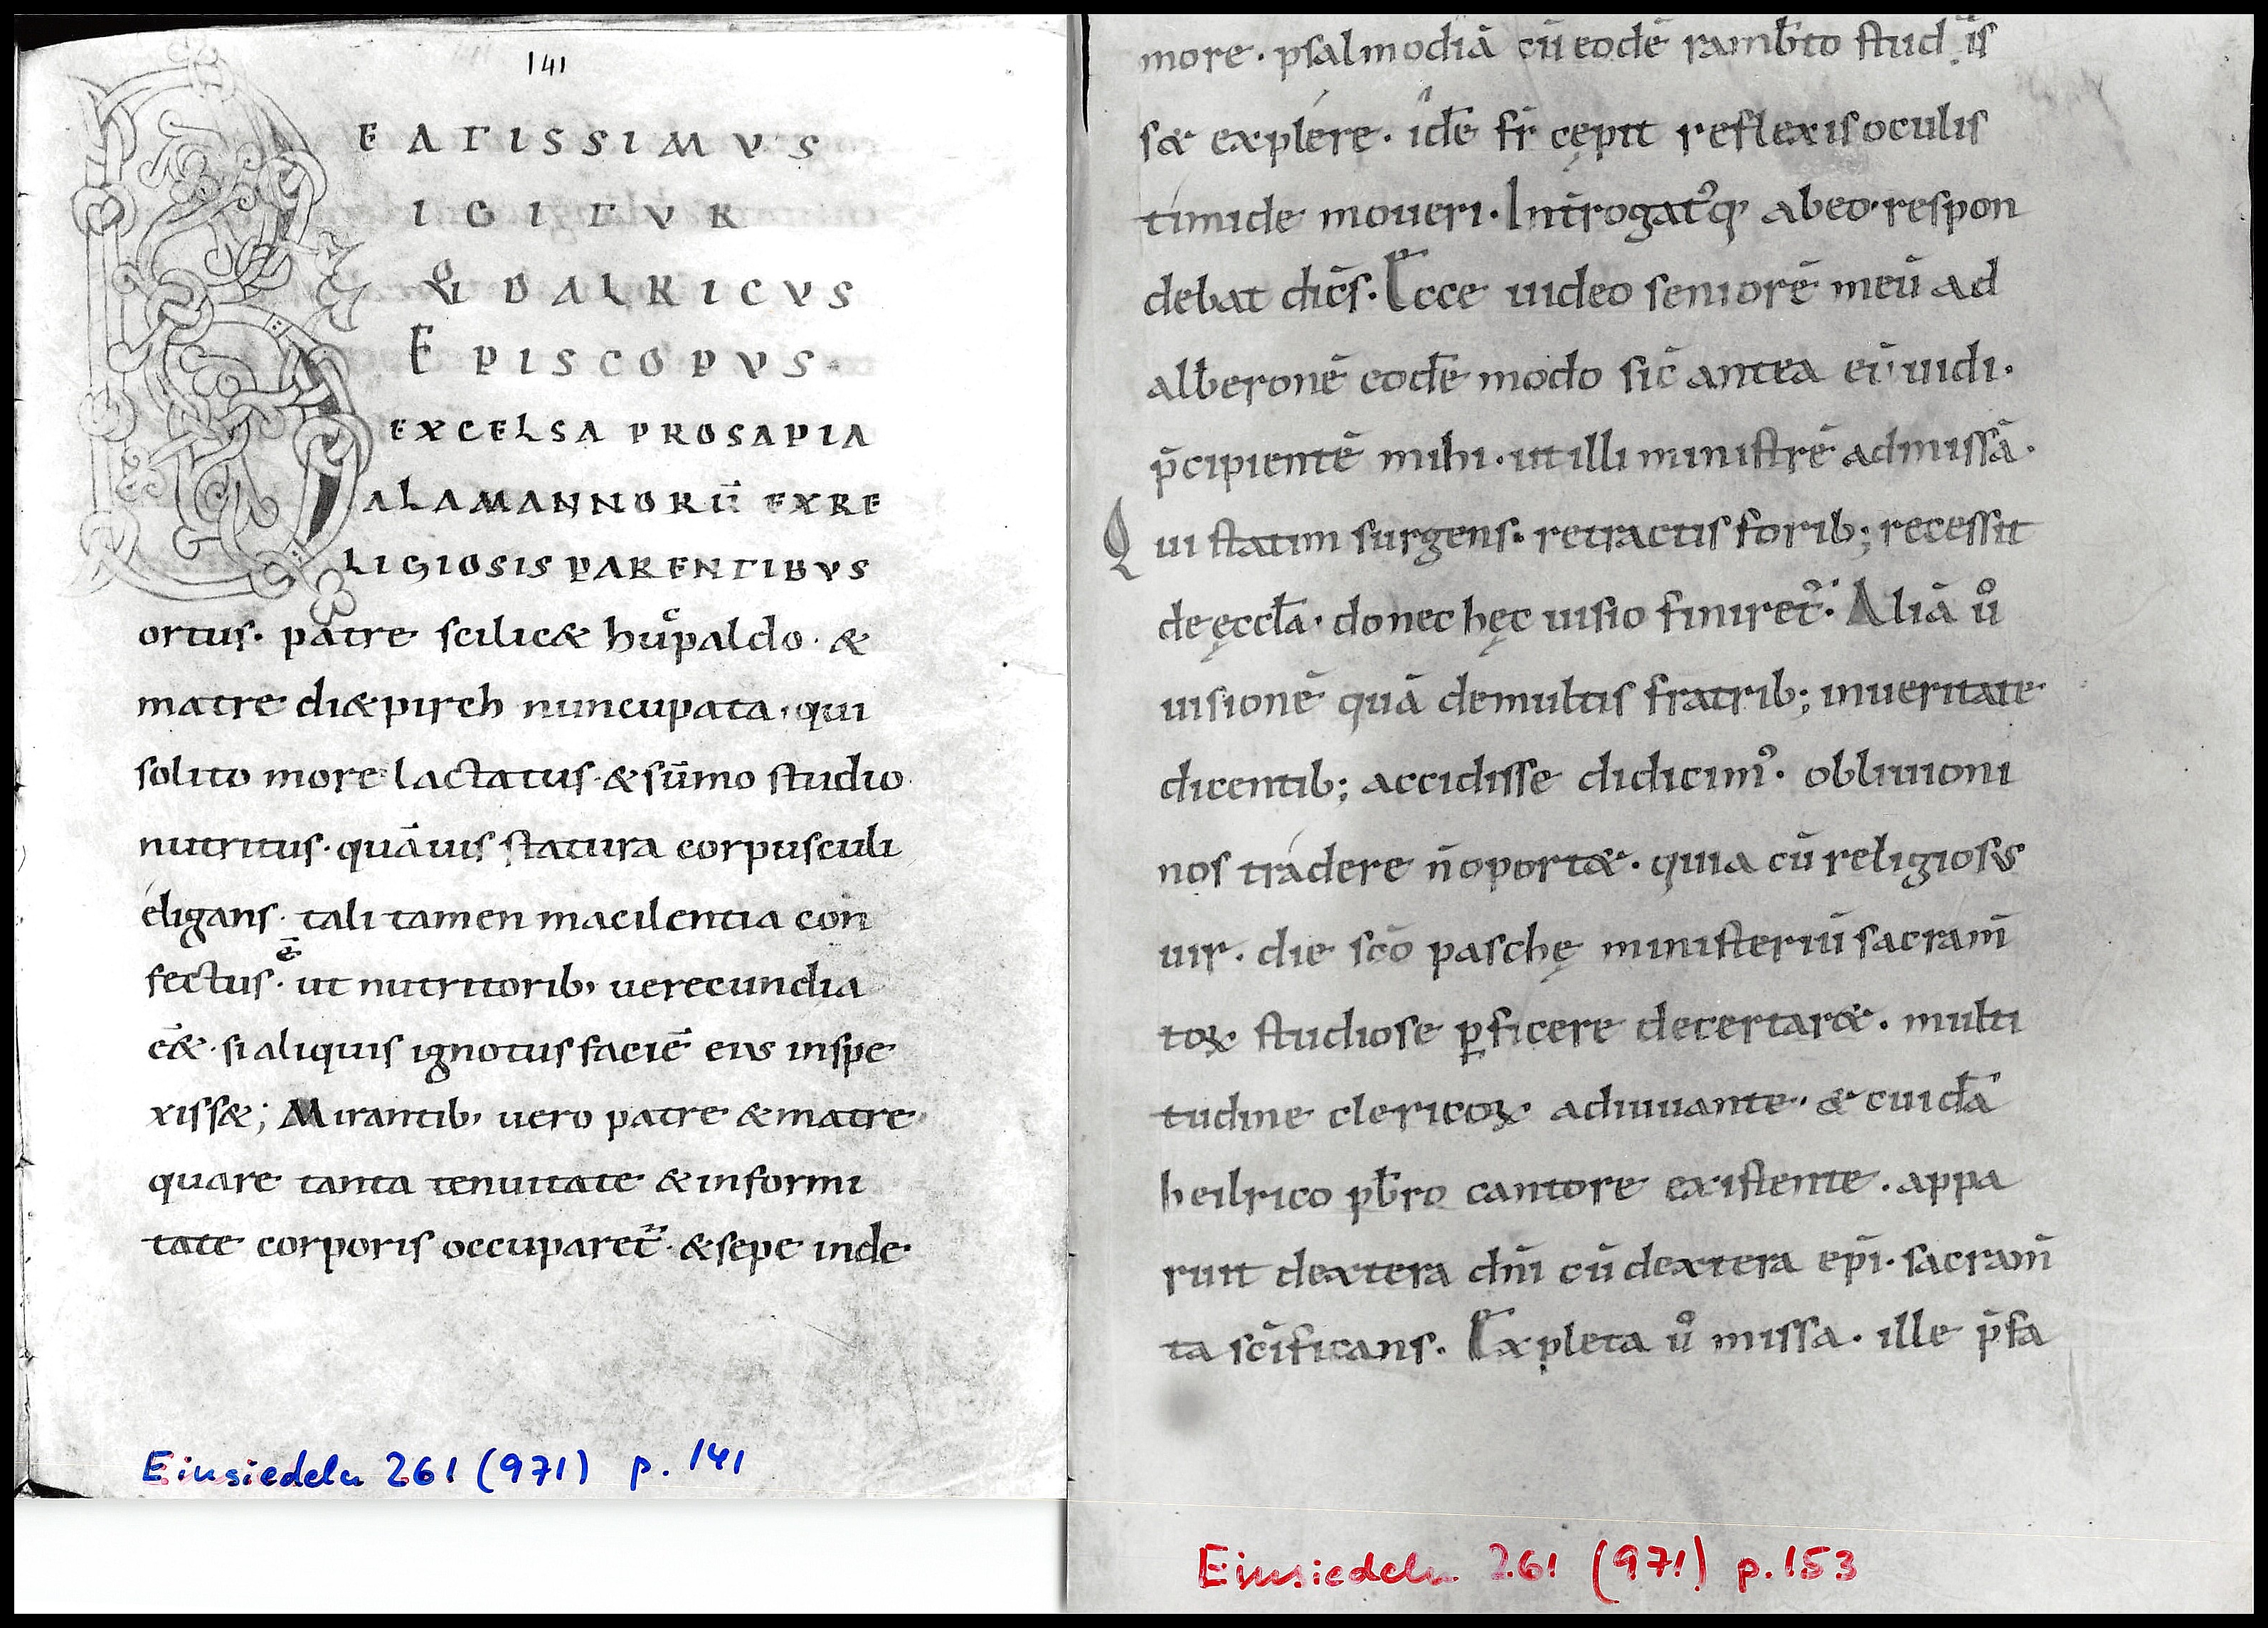 141
BEATISSIMVS
IGITVR
& DALRICVS
EPISCOPVS.
EXCELSA PROSAPIA
ALAMANNORŪ EXRE
LIGIOSIS PARENTIBVS
ortus. patre scilic& huͨpaldo. &
matre di&pirch nuncupata, qui
solito more lactatus. & sūmo studio
nutritus. quāuis statura corpusculi
éligans. tali tamen macilentia con
fectus. ē ut nutritorib, uerecundia
ēē&. si aliquis ignotus faciē eius inspe
xiss&; Mirantib, uero patre & matre
quare tanta tenuitate & informi
tate corporis occuparet᷑. & sepe inde
Einsiedeln 261 (971) p. 141
more. psalmodiā cū eodē ramb̄to stud is
s& explére. idē fr̄ cępit reflexis oculis
timide moueri. Int̄rogat᷑q; ab eo. respon
debat dic̄s. Ecce uideo seniorē meū ad
alb̄eronē eodē modo sic̄ antea eū uidi.
p̄cipientē mihi. ut illi ministrē ad missā.
Qui statim surgens. retractis forib; recessit
de ęccl̄a. donec hęc uisio finiret᷑. Aliā ů
uisionē quā de multis fratrib; in ueritate
dicentib; accidisse didicim᷒. obliuioni
nos trádere n̄ oport&. quia cū religiosus
uir. die sc̄o paschę ministeriū sacram̄
toꝝ studiose ꝑficere decertar&. multi
tudine clericoꝝ adiuuante. & cuidā
heilrico pb̄ro cantore existente. appa
ruit dextera dn̄i cū dextera ep̄i. sacram̄
ta sc̄ificans. Expleta ů missa. ille p̄fa
Einsiedeln 261 (971) p. 153